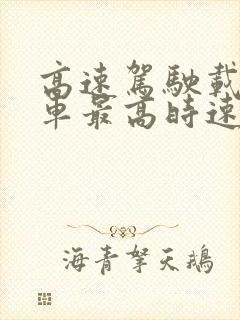 高速驾駛載
車最高時速
海青拏天鵝